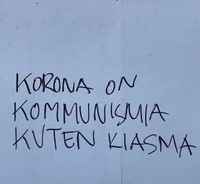 KORONA ON
KOMMUNISMIA
KUTEN KIASMA